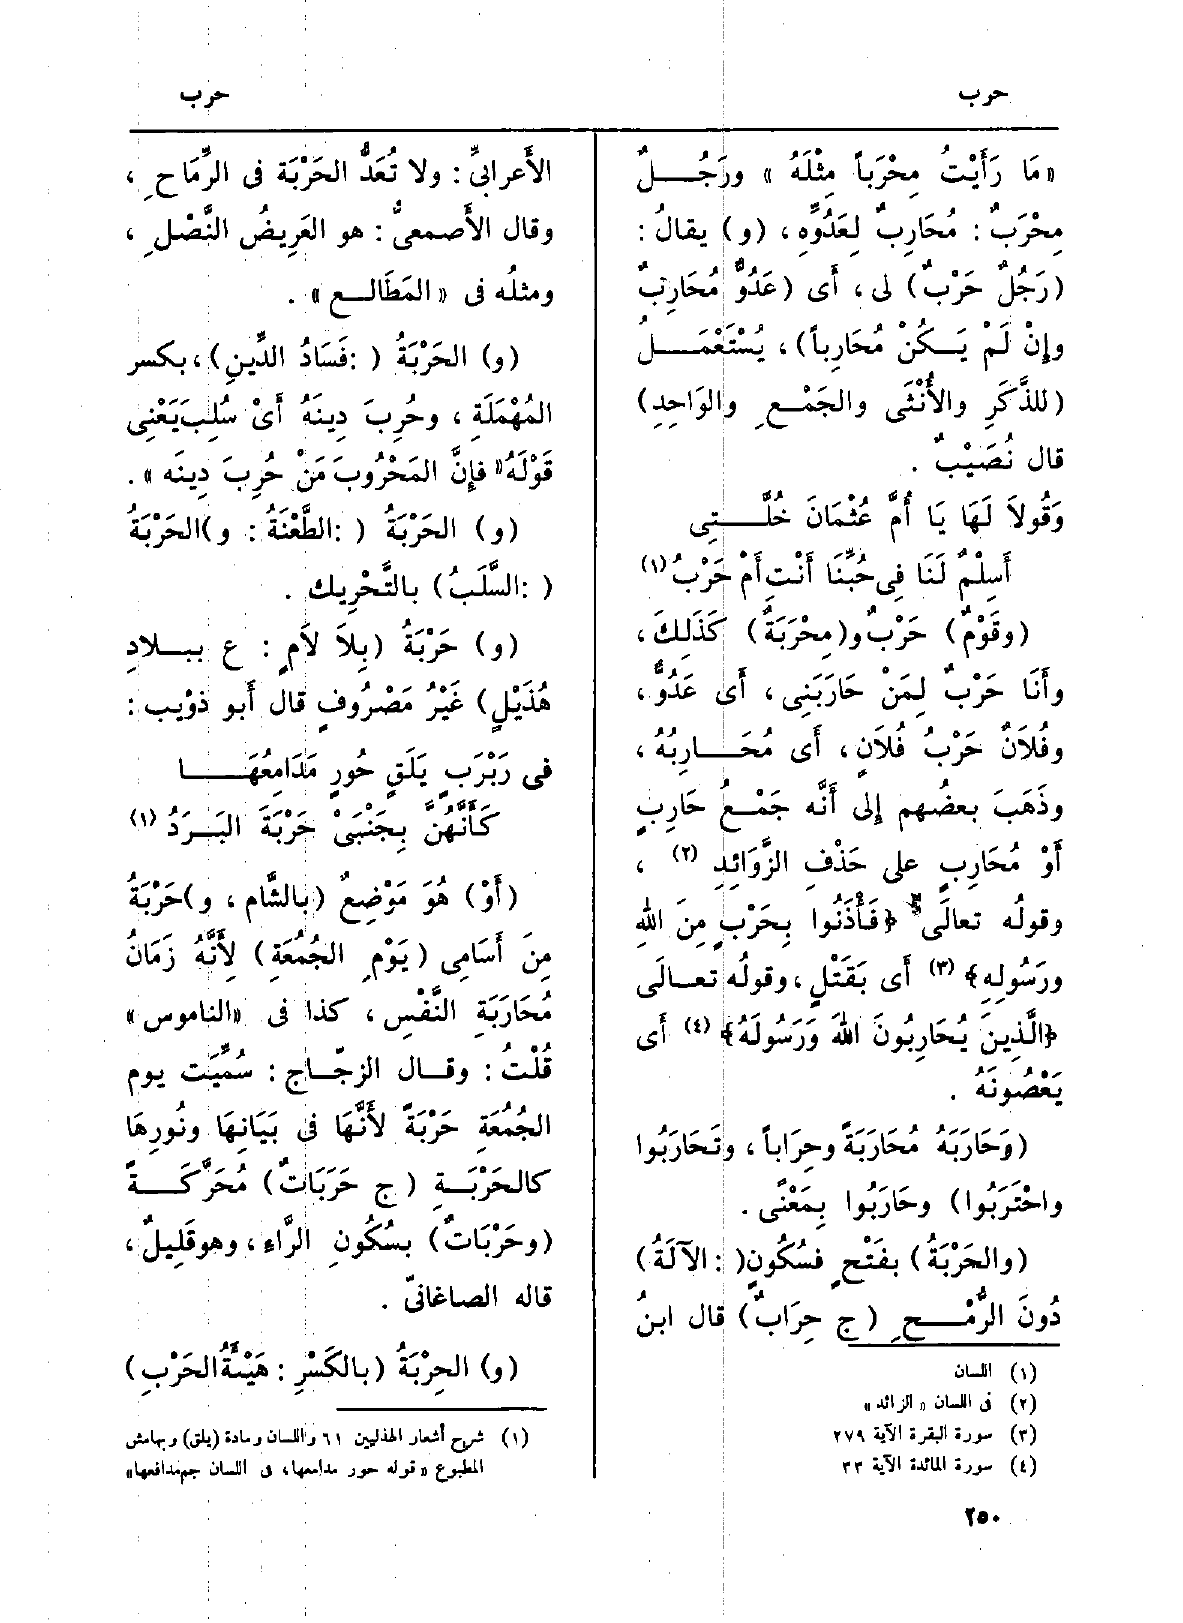 حرب
حرب
«مَا رَأَيْتُ مِحْرَباً مِثْلَهُ» ورَجُـــلٌ
مِحْرَبٌ : مُحَارِبٌ لِعَدُوِّه، (و) يقالُ :
(رَجُلٌ حَرْبٌ) لى، أى (عَدُوٌّ مُحَارِبٌ
وإِنْ لَمْ يَـكُنْ مُحَارِباً)، يُسْتَعْمَـــلُ
(للذَّكَرِ والأُنْثَى والجَمْـعِ والوَاحِدِ)
قال نُصَيْبٌ .
وَقُولاَ لَهَا يَا أُمَّ عُثْمَانَ خُلَّـــتِى
أَسِلْمٌ لَنَا فِى حُبِّنَا أَنْتِ أَمْ حَرْبُ (١)
(وقَوْمٌ) حَرْبٌ و(مِحْرَبَةٌ) كَذَلِكَ،
وأَنَا حَرْبٌ لِمَنْ حَارَبَنِى، أى عَدُوٌّ،
وفُلاَنٌ حَرْبُ فُلاَنٍ، أى مُحَـــارِبُهُ،
وذَهَبَ بعضُهم إلى أَنَّه جَمْعُ حَارِبٍ
أَوْ مُحَارِبٍ على حَذْفِ الزَّوَائِدِ (٢) ،
وقولُه تعالَى ﴿فَأْذَنُوا بِحَرْبٍ مِنَ اللهِ
ورَسُولِهِ﴾ (٣) أى بِقَتْلٍ، وقولُه تعـالَى
﴿الَّذِينَ يُحَارِبُونَ اللهَ وَرَسُولَهُ﴾ (٤) أى
يَعْصُونَهُ .
(وَحَارَبَهُ مُحَارَبَةً وحِرَاباً، وتَحَارَبُوا
واحْتَرَبُوا) وحَارَبُوا بِمَعْنًى .
(والحَرْبَةُ) بفَتْحٍ فسُكُونٍ( : الآلَةُ)
دُونَ الرُّمْـــحِ (ج حِرَابٌ) قال ابنُ
(١) اللسان
(٢) فى اللسان «الزائد»
(٣) سورة البقرة الآية ٢٧٩
(٤) سورة المائدة الآية ٣٣
الأَعرابىِّ : ولا تُعَدُّ الحَرْبَة فى الرِّمَاحِ ،
وقال الأَصمعىُّ : هو العَرِيضُ النَّصْلِ ،
ومثلُه فى «المَطَالـع» .
(و) الحَرْبَةُ ( :فَسَادُ الدِّينِ)، بكسر
المُهْمَلَةِ ، وحُرِبَ دِينَهُ أَىْ سُلِبَ يَعْنِى
قَوْلَهُ «فإِنَّ المَحْرُوبَ مَنْ حُرِبَ دِينَه» .
(و) الحَرْبَةُ ( :الطَّعْنَةُ : و)الحَرْبَةُ
( :السَّلَبُ) بالتَّحْرِيك .
(و) حَرْبَةُ (بِلاَ لاَمٍ : ع ببـلادِ
هُذَيْلٍ) غَيْرُ مَصْرُوفٍ قال أَبو ذؤيب :
فى رَبْرَبٍ يَلَقٍ حُورٍ مَدَامِعُهَـــا
كَأَنَّهُنَّ بِجَنْبَىْ حَرْبَةَ البَـرَدُ (١)
(أَوْ) هُوَ مَوْضِعٌ (بالشَّام ، و)حَرْبَةُ
مِنَ أَسَامِى (يَوْمِ الجُمُعَةِ) لِأَنَّهُ زَمَانُ
مُحَارَبَةِ النَّفْسِ، كذا فى «الناموس»
قُلْتُ : وقـال الزجّـاج : سُمِّيَت يوم
الجُمُعَةِ حَرْبَةً لأَنَّهَا فى بَيَانِهَا ونُورِهَا
كالحَرْبَـةِ (ج حَرَبَاتٌ) مُحَرَّكَـــةً
(وحَرْبَاتٌ) بسُكُونِ الرَّاءِ، وهو قَلِيلٌ،
قاله الصاغانىّ .
(و) الحِرْبَةُ (بالكَسْرِ : هَيْئَةُ الحَرْبِ)
(١) شرح أشعار الهذليين ٦١ واللسان ومادة (يلق) وبهامش
المطبوع «قوله حور مدامعها، فى اللسان جم مدافعها»
٢٥٠